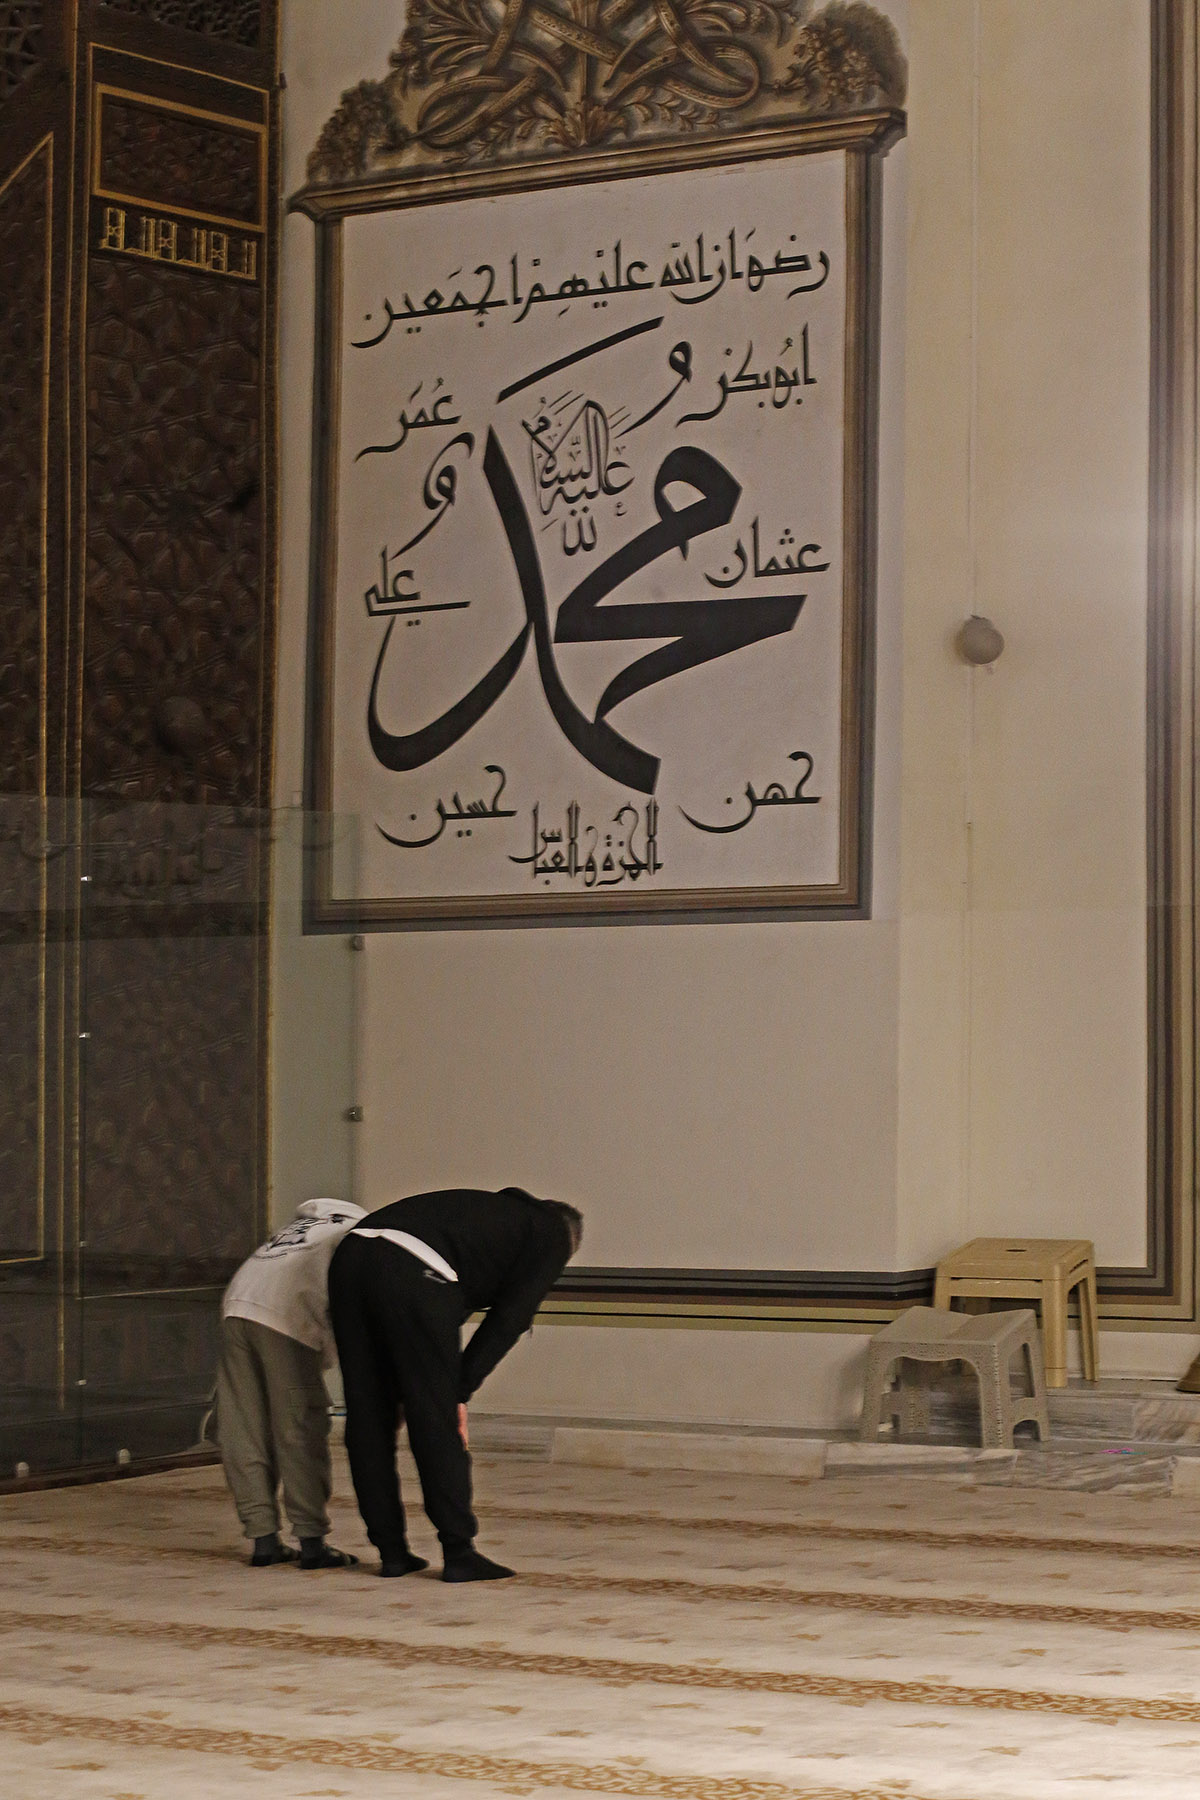 رضوان الله عليهم اجمعين
ابوبكر
عُمَر
محمد
عليه السلام
عثمان
علي
حسن
حسين
الحمزة والعباس